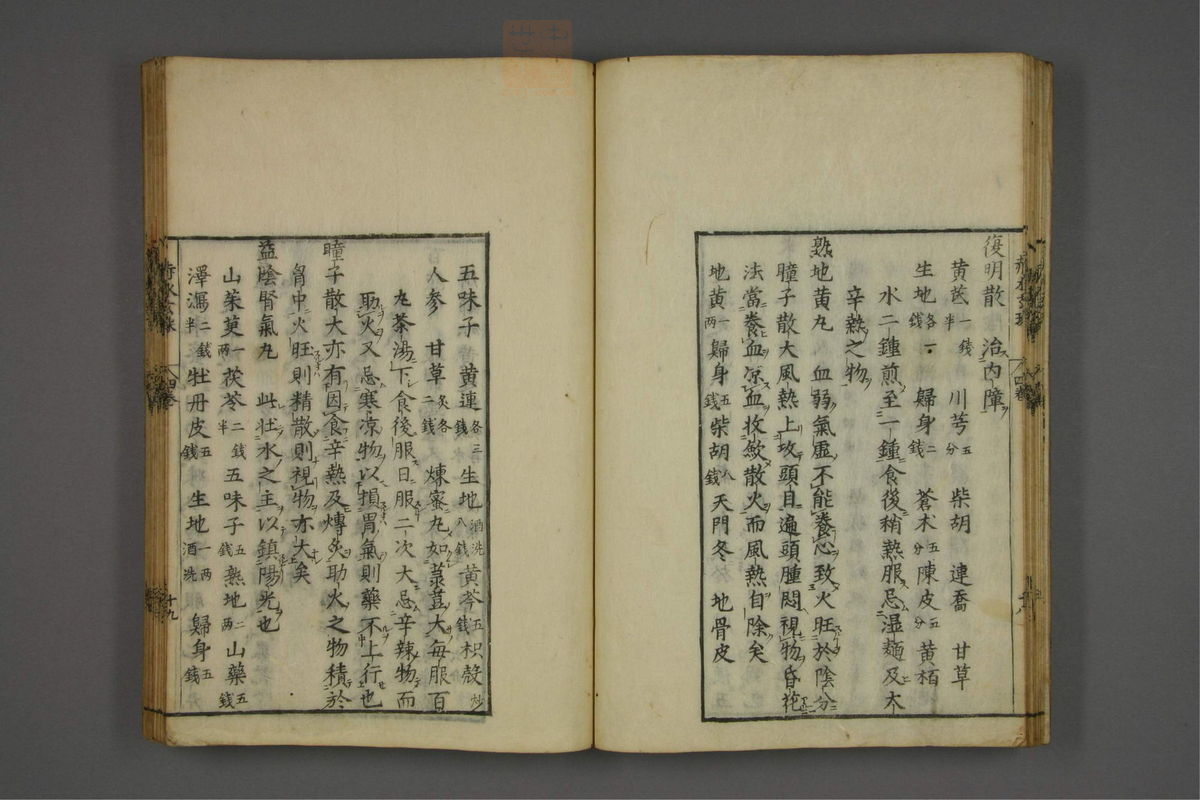 復明散 治内障
黄芪一錢半 川芎五分 柴胡 連喬 甘草
生地各一錢 歸身二錢 蒼朮五分 陳皮五分 黄栢
水二鍾煎至一鍾食後稍熱服忌湿麺及大
辛熱之物
熟地黄丸 血弱氣虚不能養心致火旺於陰分
瞳子散大風熱上攻頭目遍頭腫悶視物昏花
法當養血凉血收歛散火而風熱自除矣
地黄一两 歸身五錢 柴胡八錢 天門冬 地骨皮
五味子 黄連各三錢 生地酒洗八錢 黄芩五錢 枳殻炒
人參 甘草炙各二錢 煉蜜丸如菉荳大每服百
丸茶湯下食後服日服二次大忌辛辣物而
助火又忌寒凉物以損胃氣則藥不上行也
瞳子散大亦有因食辛熱及煿炙助火之物積於
胷中火旺則精散則視物亦大矣
益陰腎氣丸 此壮水之主以鎮陽光也
山茱萸一两 茯苓二錢半 五味子五錢 熟地二两 山藥五錢
澤瀉二錢半 牡丹皮五錢 生地一两酒洗 歸身五錢
四巻
十九